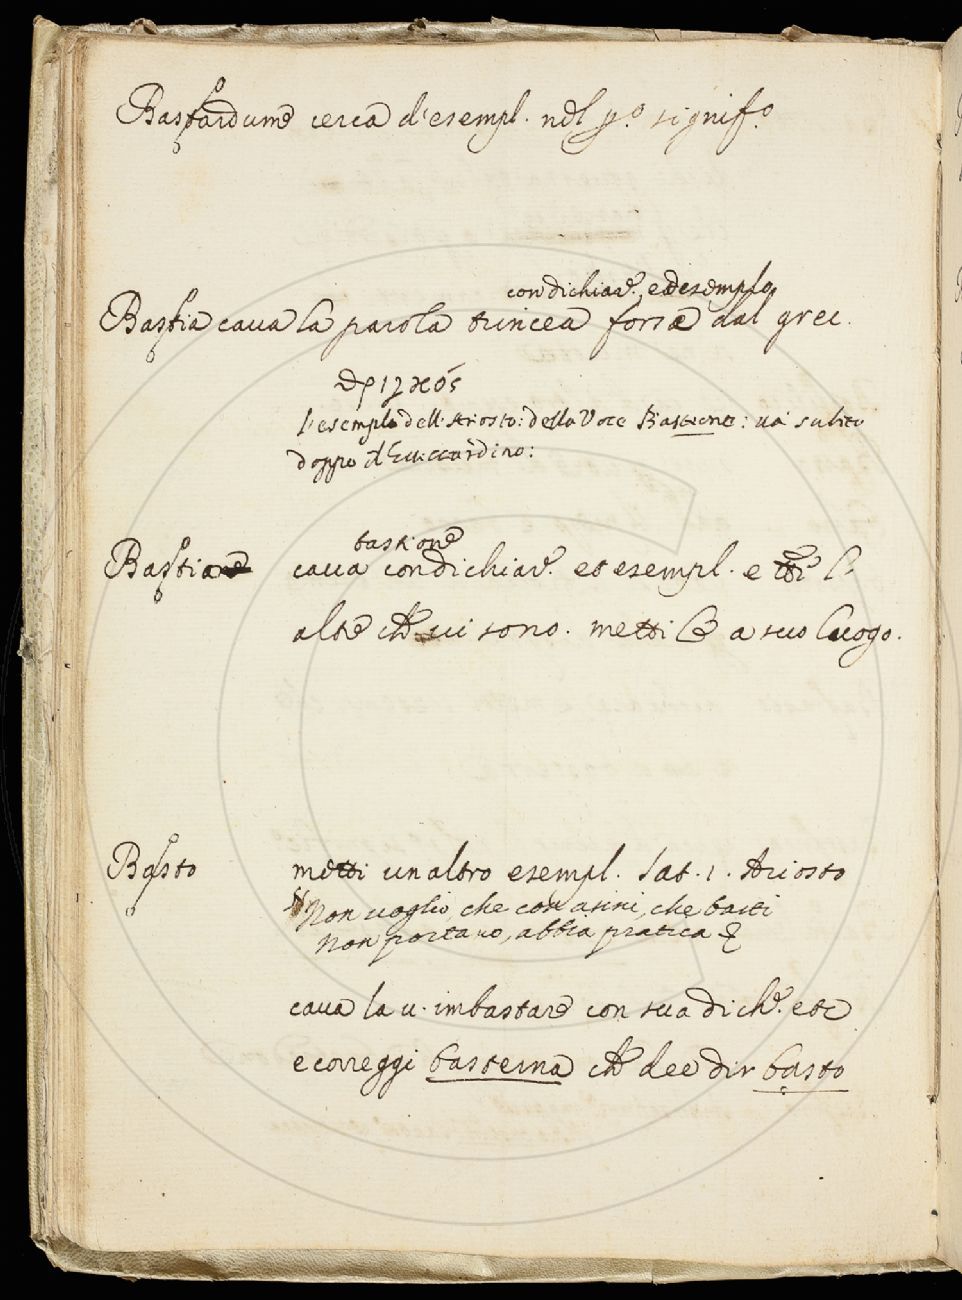 Bastardume cerca d'esempl. nel p.º signif.º
con dichiar.e, ed esemplo
Bastia caua la parola trincea forse dal grec.
l'esemplo dell'Ariosto: della Voce Bastione: uà subito
doppo il Guiccardino:
bastione
Bastia caua con dichiar.e et esempl. e
altre che ui sono. metti le a suo luogo.
Basto metti un altro esempl. Sat. 1. Ariosto
Non uoglio, che con asini, che basti
Non portano, abbia pratica
caua la u. imbastare con sua dich.e etc
e correggi basterna che dee dir basto